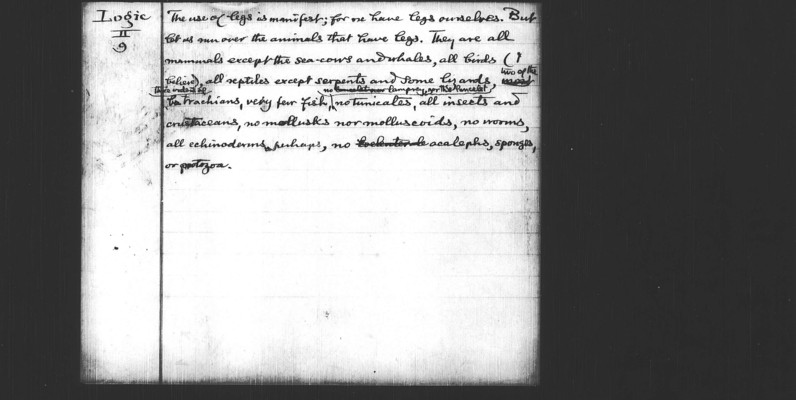 Logic
II
9
The use of legs is manifest; for we have legs ourselves. But
let us run over the animals that have legs. They are all
mammals except the sea-cows and whales, all birds (I
believe), all reptiles except serpents and some lizards,
two of the
three orders of
batrachians, very few fish, no tunicates, all insects and
no lancelet nor lamprey, nor the lancelet
crustaceans, no mollusks nor molluscoids, no worms,
all echinoderms, perhaps, no acalephs, sponges,
or protozoa.